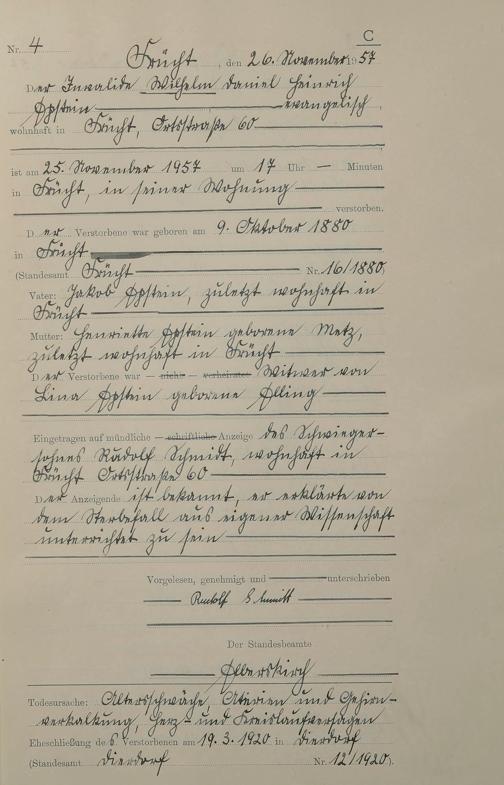 C
Nr. 4
Frücht, den 26. November 1957
Der Invalide Wilhelm Daniel Heinrich
Eppstein evangelisch,
wohnhaft in Frücht, Ortsstraße 60
ist am 25. November 1957 um 17 Uhr — Minuten
in Frücht, in seiner Wohnung
verstorben.
Der Verstorbene war geboren am 9. Oktober 1880
in Frücht
(Standesamt Frücht Nr. 16/1880)
Vater: Jakob Eppstein, zuletzt wohnhaft in
Frücht
Mutter: Henriette Eppstein geborene Metz,
zuletzt wohnhaft in Frücht
Der Verstorbene war — nicht — verheiratet Witwer von
Lina Eppstein geborene
Eingetragen auf mündliche — schriftliche Anzeige des Schwieger-
sohnes Rudolf Schmidt, wohnhaft in
Frücht Ortsstraße 60
Der Anzeigende ist bekannt, er erklärte von
dem Sterbefall aus eigener Wissenschaft
unterrichtet zu sein
Vorgelesen, genehmigt und unterschrieben
Rudolf Schmidt
Der Standesbeamte
Elberskirch
Todesursache: Altersschwäche, Aterien und Gehirn-
verkalkung, Herz- und Kreislaufversagen
Eheschließung des Verstorbenen am 19.3.1920 in Dierdorf
(Standesamt Dierdorf Nr. 12/1920).